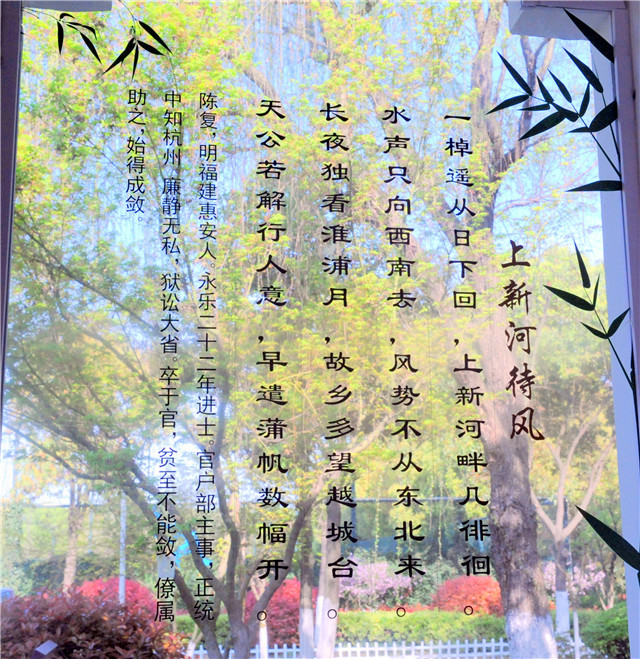 上新河待风
一棹遥从日下回,上新河畔几徘徊。
水声只向西南去,风势不从东北来。
长夜独看淮浦月,故乡多望越城台。
天公若解行人意,早遣蒲帆数幅开。
陈复,明福建惠安人。永乐二十二年进士。官户部主事,正统
中知杭州,廉静无私,狱讼大省。卒于官,贫至不能敛,僚属
助之,始得成敛。